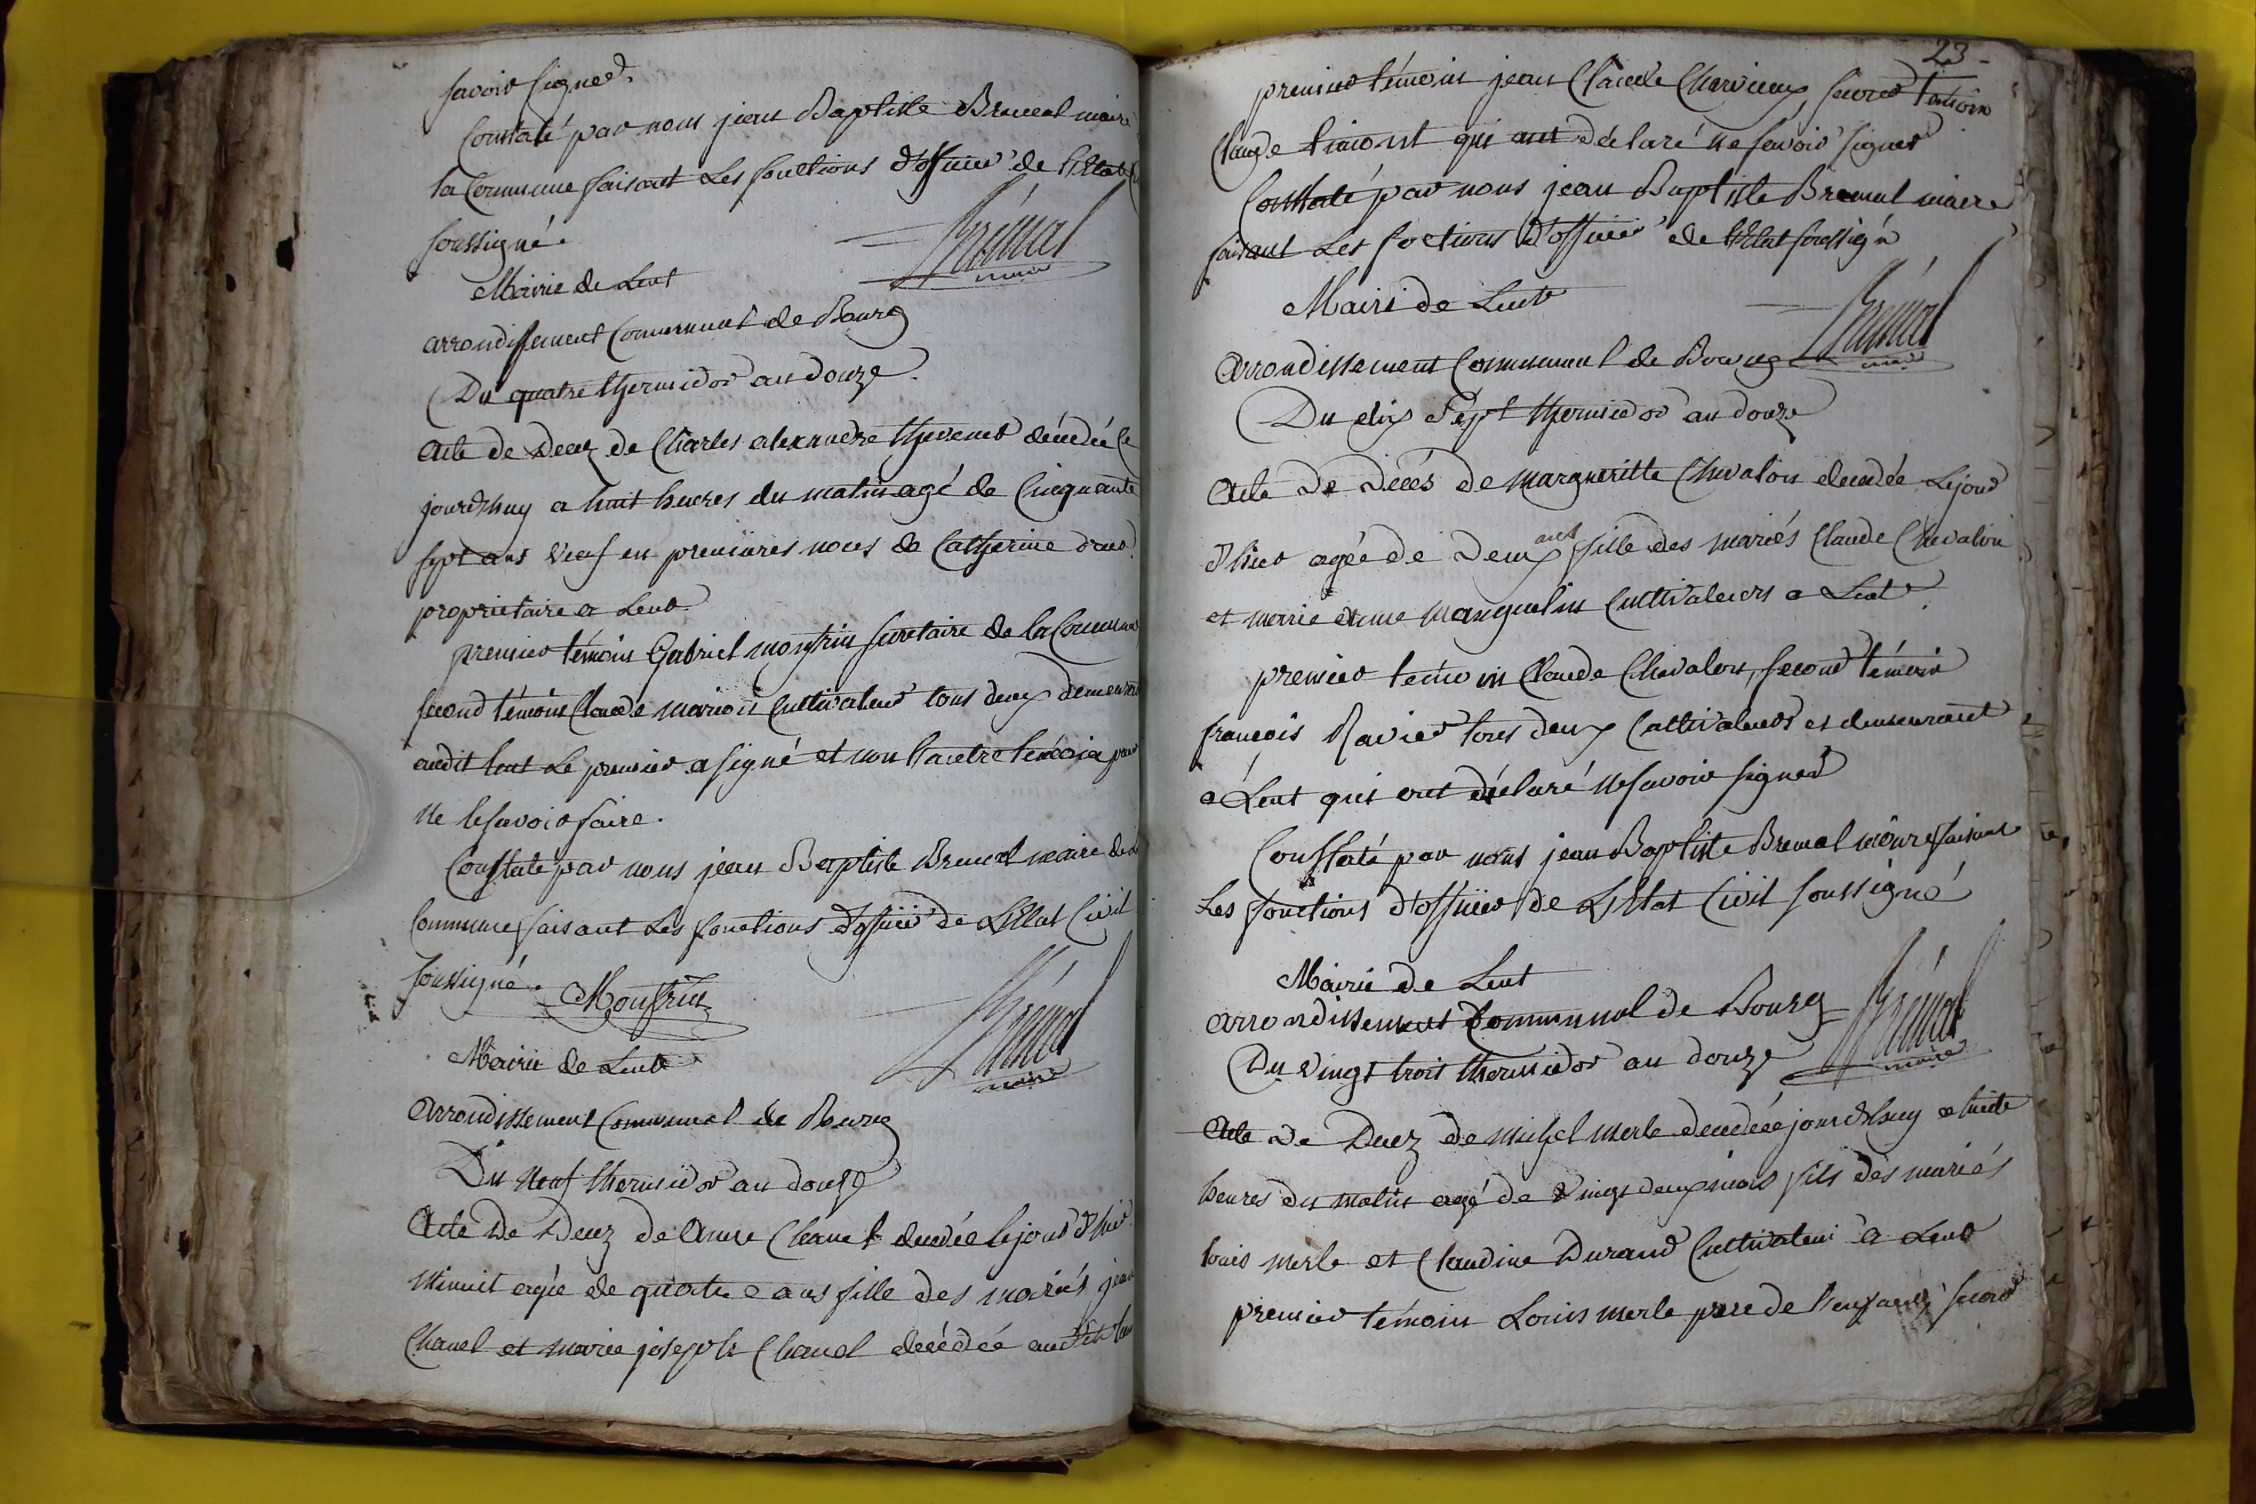 savoir signer.
Constaté par nous jean Baptiste Bremal maire
la Commune faisant Les fonctions d'officier de l'Etat
soussigné.
Brémal
maire
Mairie de Lent
arrondissement Communal de Bourg
Du quatre thermidor an douze.
Acte de Decez de Charles alexandre thevenet décédé ce
jourd'huy a huit heures du matin agé de Cinquante
sept ans veuf en premieres noces de Catherine
proprietaire a Lent.
premier témoin Gabriel monfrin secretaire de la Commune
second témoin Claude marion Cultivateur tous deux demeurant
audit lent Le premier a signé et non l'autre témoin pour
ne le savoir faire.
Constaté par nous jean Baptiste Bremal maire de
Commune faisant Les fonctions d'officier de L'Etat Civil
soussigné.
Monfrin
Brémal
maire
Mairie de Lent
Arrondissement Communal de Bourg
Du neuf thermidor an douze
Acte De Decez de Anne Chanel decedée le jour d'hier
Minuit agée de quatre ans fille des mariés jean
Chanel et marie joseph Chanel decédée audit lent
23
premier témoin jean Claude Charvieux, second temoin
Claude timont qui ont déclaré ne savoir signer
Constaté par nous jean Baptiste Bremal maire
faisant Les foctions d'officier de l'Etat soussigné
Brémal
maire
Mairi de Lent
Arrondissement Communal de Bourg
Du dix Sept thermidor an douze
Acte De décés de margueritte Chevalon decedée Le jour
d'hier agée de Deux ans fille des mariés Claude Chevalon
et marie anne manguelin Cultivateurs a Lent.
premier temoin Claude Chevalon, second témoin
françois Ravier tous deux Cultivateurs et demeurant
a Lent qui ont déclaré ne savoir signer
Constaté par nous jean Baptiste Bremal maire faisant
Les fonctions d'officier de L'Etat Civil soussigné
Brémal
maire
Mairie de Lent
Arrondissement Communal de Bourg
Du vingt trois thermidor an douze
Acte De Decez de michel merle decedé ce jourd'huy a huit
heures du matin agé de vingt deux mois fils des mariés
louis merle et Claudine Durand Cultivateur a Lent
premier témoin Louis merle pere de l'enfant, second